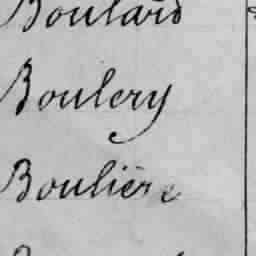 Boulard
Boulery
Boulière